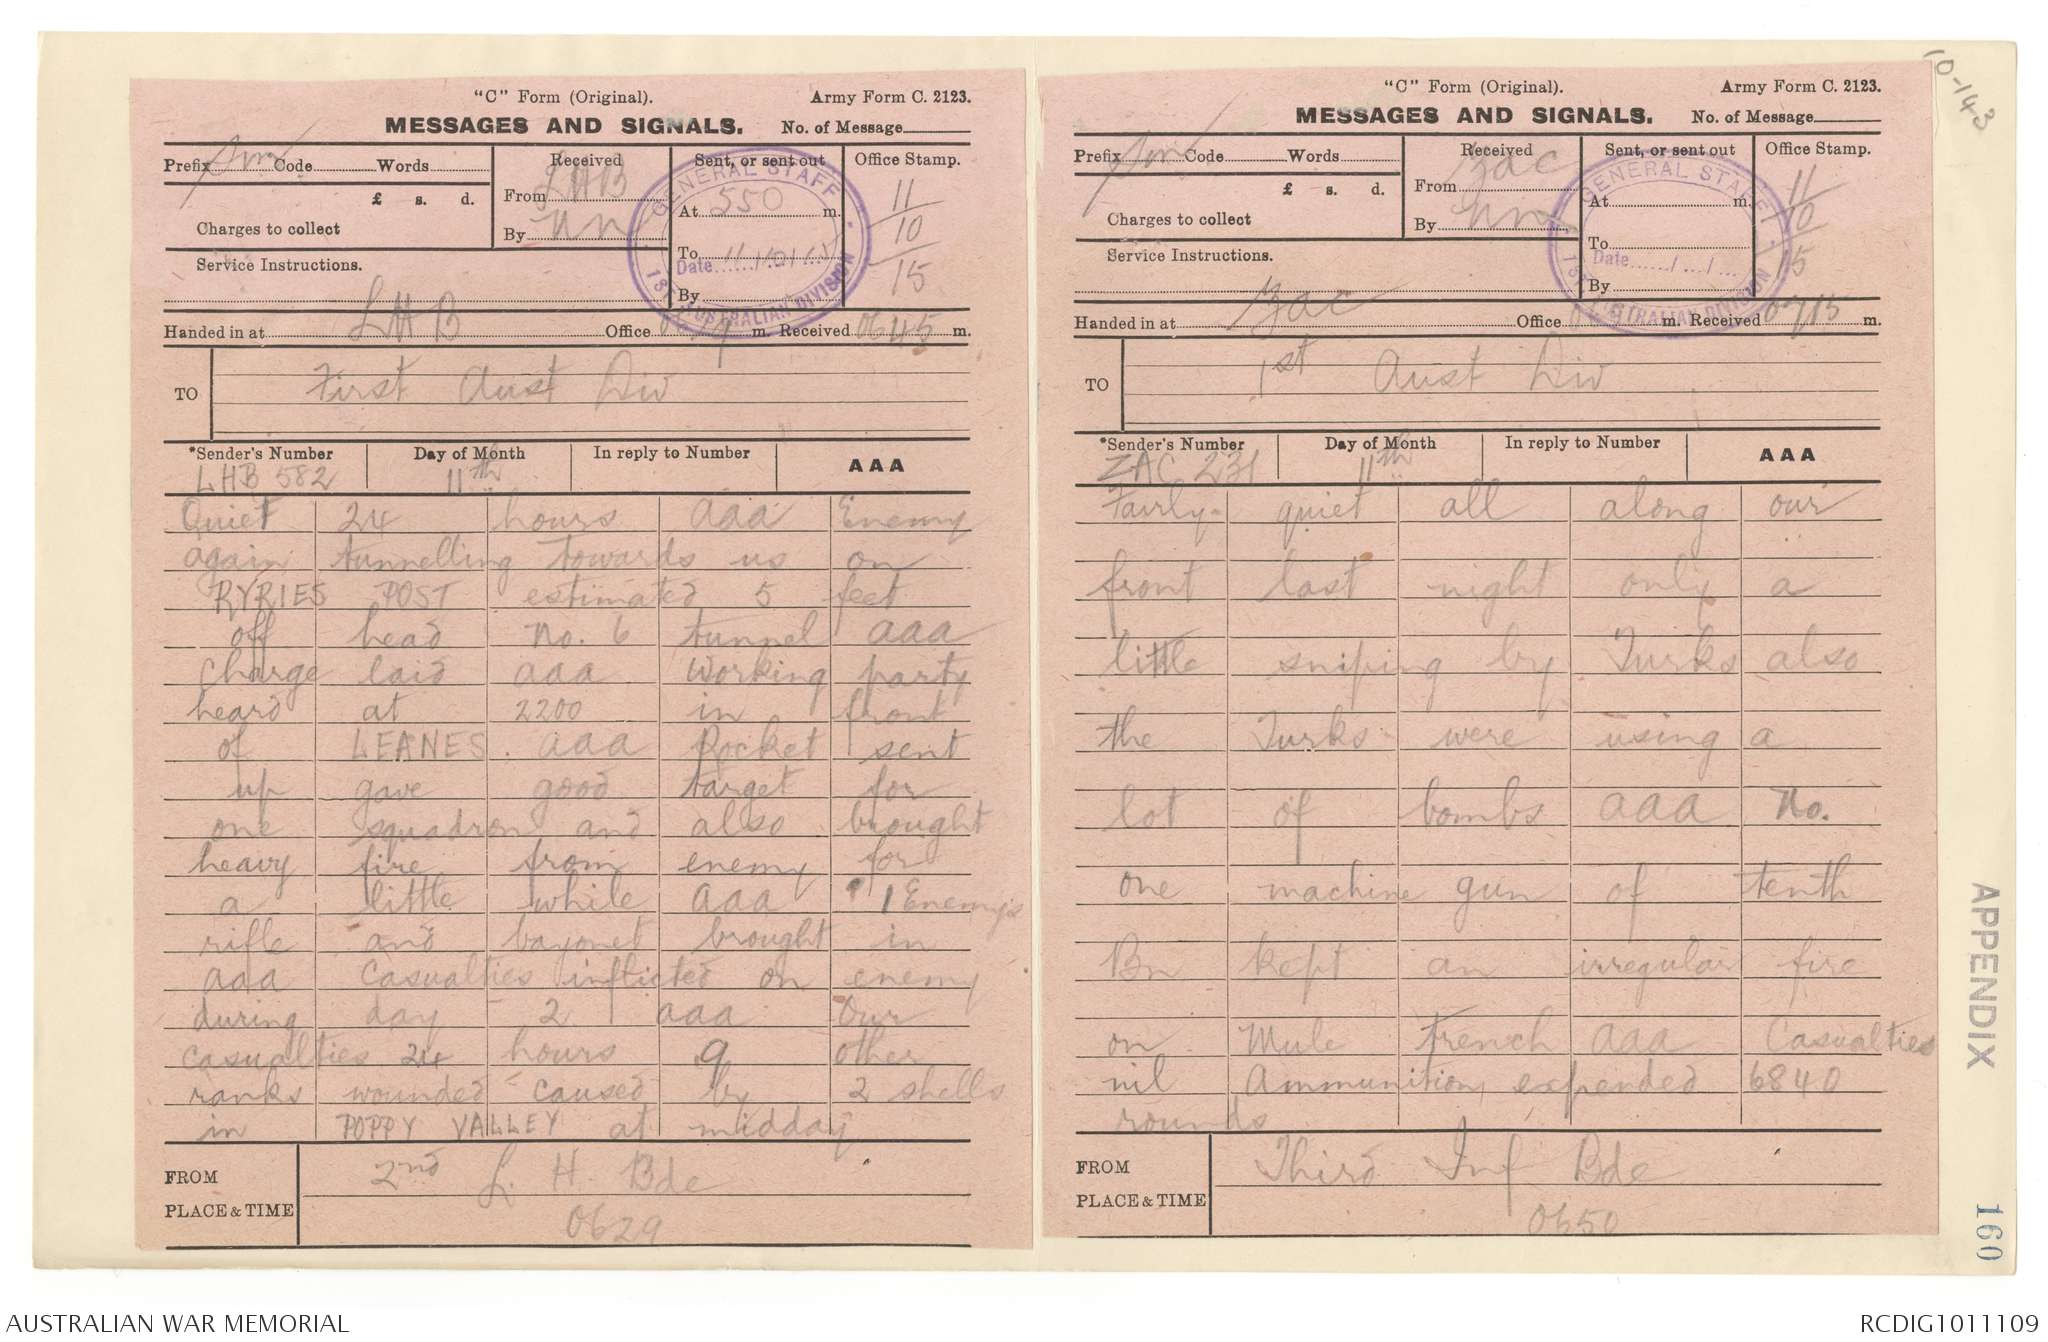 "C" Form (Original). Army Form C. 2123.
MESSAGES AND SIGNALS. No. of Message
Prefix Sm Code Words
£ s. d.
Charges to collect
Service Instructions.
Received
From LHB
By
Sent, or sent out
At 550 m.
To
By
Office Stamp.
11
10
15
GENERAL STAFF
Date 11/10/15
1ST AUSTRALIAN DIVISION
LHB
Handed in at Office m. Received 0645 m.
TO First Aust Div
*Sender's Number Day of Month In reply to Number AAA
LHB 582 11th
Quiet 24 hours aaa Enemy
again tunnelling towards us on
RYRIES POST estimated 5 feet
off head No. 6 tunnel aaa
Charge laid aaa Working party
heard at 2200 in front
of LEANES. aaa Rocket sent
up gave good target for
one squadron and also brought
heavy fire from enemy for
a little while aaa 1 Enemy's
rifle and bayonet brought in
aaa Casualties inflicted on enemy
during day 2 aaa Our
casualties 24 hours 9 other
ranks wounded caused by 2 shells
in POPPY VALLEY at midday
FROM 2nd L. H. Bde
PLACE & TIME 0629
10-143
"C" Form (Original). Army Form C. 2123.
MESSAGES AND SIGNALS. No. of Message
Prefix Sm Code Words
£ s. d.
Charges to collect
Service Instructions.
Received
From Zac
By
Sent, or sent out
At m.
To
By
Office Stamp.
11
10
15
GENERAL STAFF
Date / /
1ST AUSTRALIAN DIVISION
Zac
Handed in at Office m. Received 0715 m.
TO 1st Aust Div
*Sender's Number Day of Month In reply to Number AAA
ZAC 231 11th
Fairly quiet all along our
front last night only a
little sniping by Turks also
the Turks were using a
lot of bombs aaa No.
one machine gun of tenth
Bn kept an irregular fire
on Mule trench aaa Casualties
nil Ammunition expended 6840
rounds
FROM Third Inf Bde
PLACE & TIME 0650
APPENDIX
160
AUSTRALIAN WAR MEMORIAL RCDIG1011109